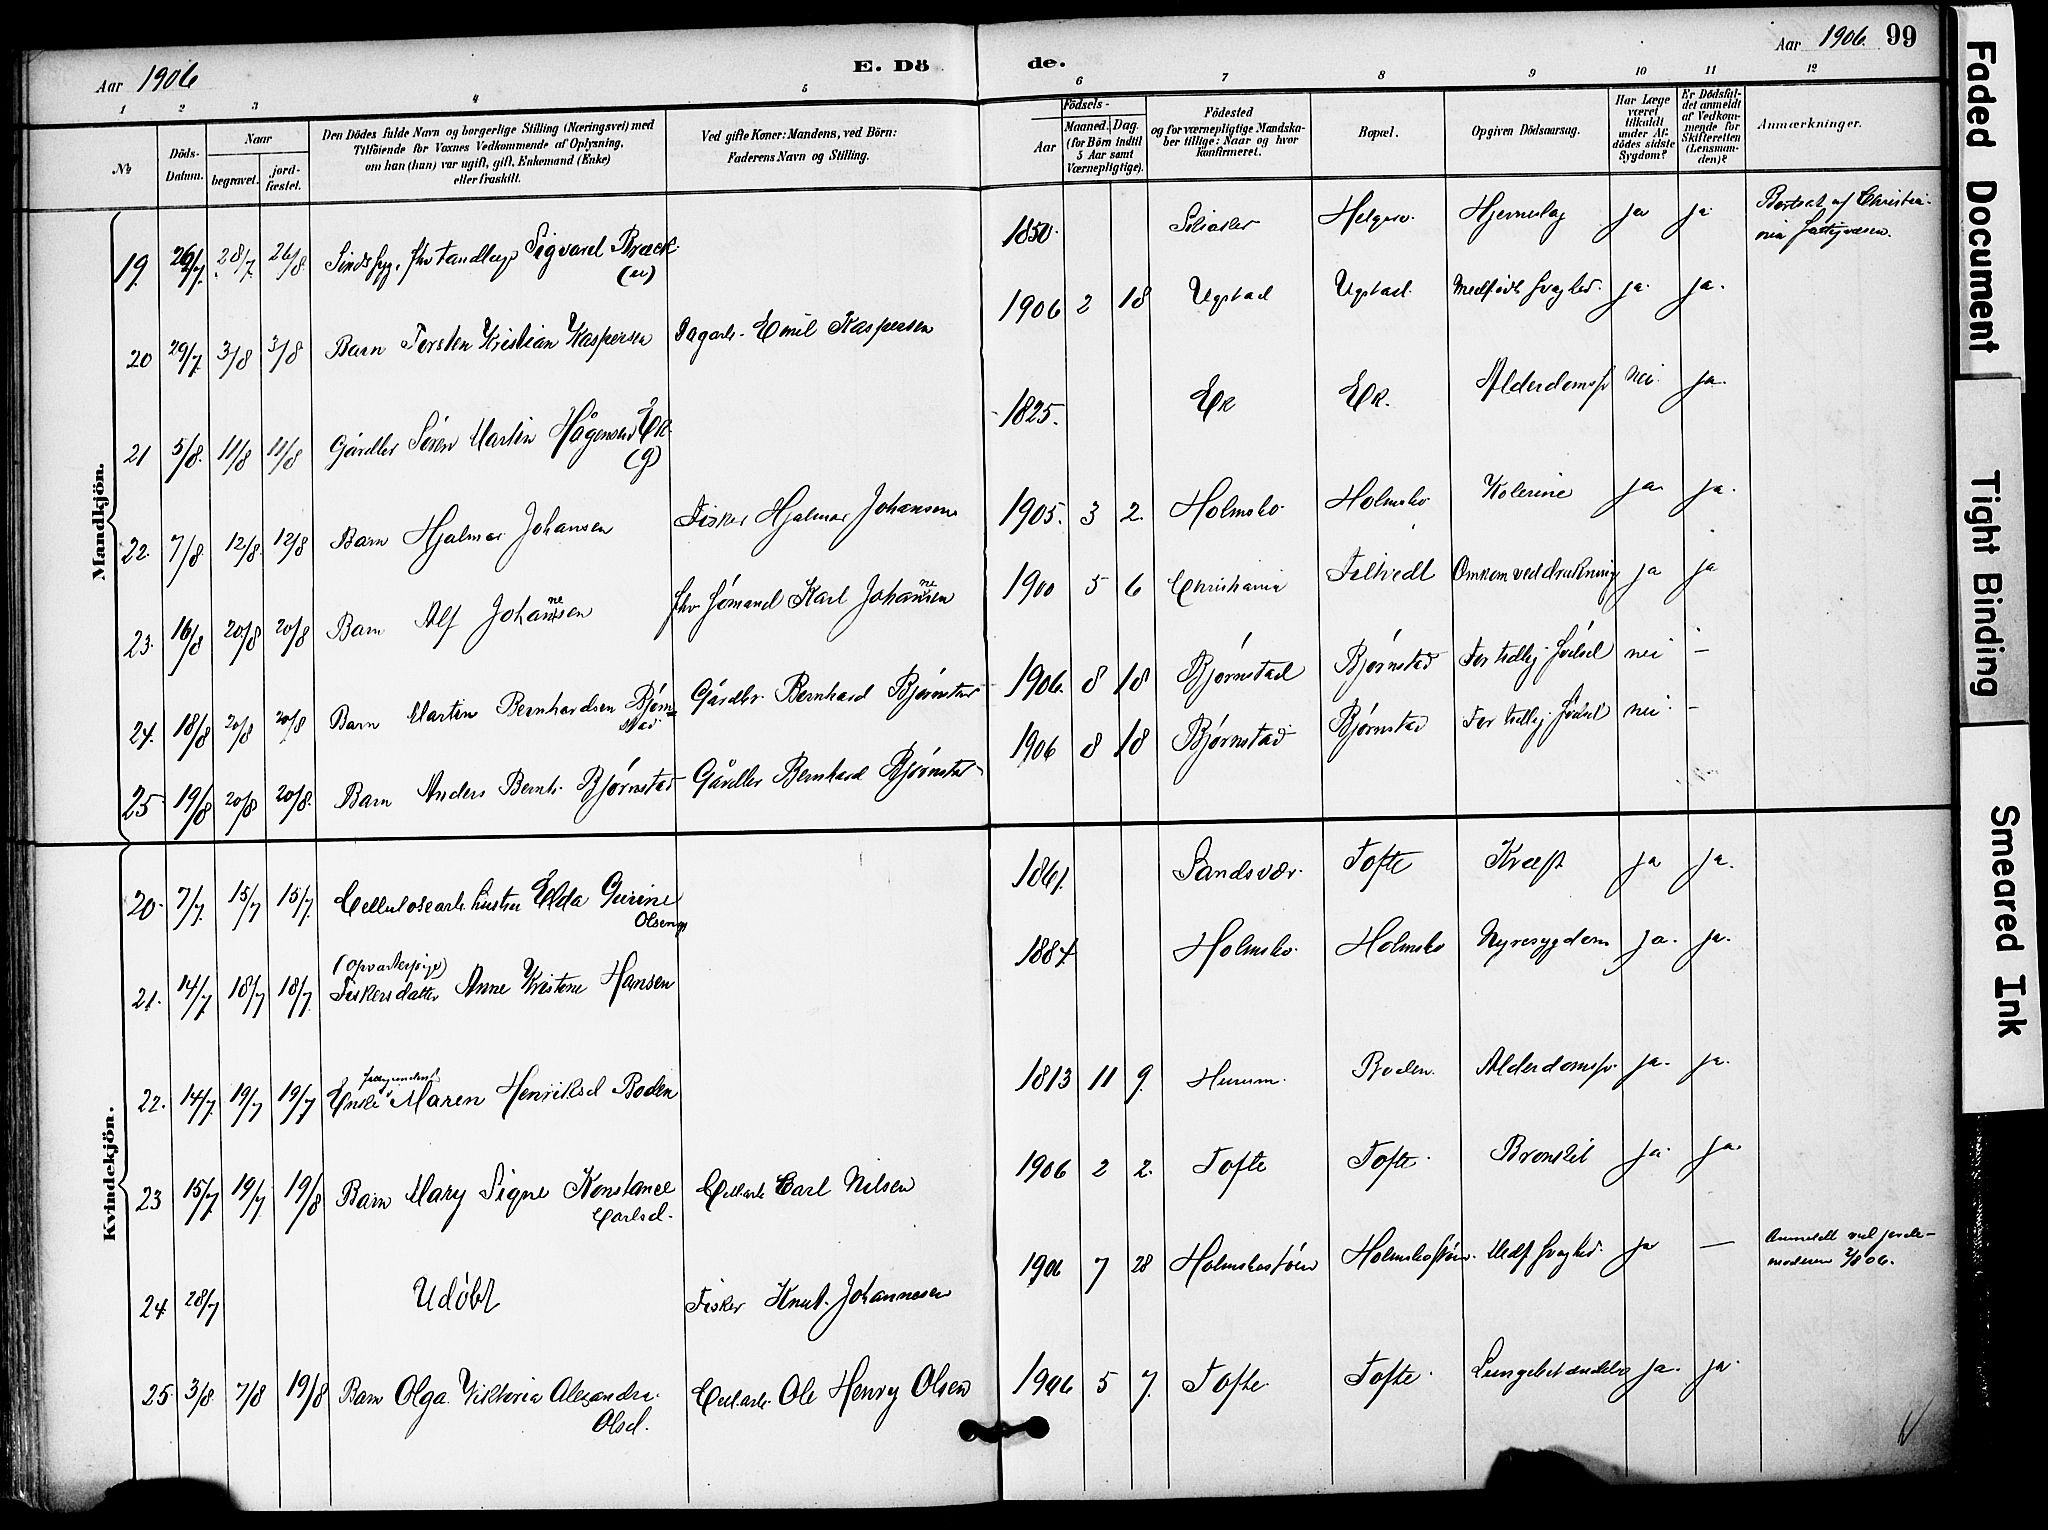 Aar 1906
E. Dö
de.
Aar 1906. 99
1 2 3 4 5 6 7 8 9 10 11 12
№
Döds-Datum.
Naar
begravet.
jord-fæstet.
Den Dödes fulde Navn og borgerlige Stilling (Næringsvei) med
Tilföiende for Voxnes Vedkommende af Oplysning,
om han (hun) var ugift, gift, Enkemand (Enke)
eller fraskilt.
Ved gifte Koner: Mandens, ved Börn:
Faderens Navn og Stilling.
Födsels-
Aar
Maaned. Dag.
(for Börn indtil
5 Aar samt
Værnepligtige).
Födested
og for værnepligtige Mandska-
ber tillige: Naar og hvor
konfirmeret.
Bopæl.
Opgiven Dödsaarsag.
Har Læge
været
tilkaldt
under Af-
dödes sidste
Sygdom?
Er Dödsfal-
det anmeldt
af Vedkom-
mende for
Skifteretten
(Lensman-
den)?
Anmærkninger.
Mandkjön.
19. 26/7 28/7 26/8 Sindssyg, fhv tandlæge Sigvard Bræck (u) 1850. Helgerø. ja ja Bortsat af Christia-
nia fattigvæsen.
20 29/7 3/8 3/8 Barn Torsten Kristian Kaspersen Dagarb. Emil Kaspersen 1906 2 18 Ugstad Ugstad. Medfødt svaghed. ja. ja.
21 5/8. 11/8 11/8 Gårdbr Søren Martin Hågensen Ek (g) 1825. Ek Ek. Alderdomssv nei. ja.
22. 7/8. 12/8. 12/8 Barn Hjalmar Johansen Fisker Hjalmar Johansen 1905. 3 2. Holmsbo. Holmsbo Kolerine ja. ja.
23. 16/8 20/8 20/8 Barn Alf Johannesen fhv sømand Karl Johannesen 1900 5 6 Christiania Filtvedt Omkom ved drukning ja ja
24. 18/8 20/8 20/8 Barn Martin Bernhardsen Bjørn=
stad Gårdbr. Bernhard Bjørnstad 1906. 8 18 Bjørnstad Bjørnstad For tidlig fødsel nei –
25. 19/8 20/8 20/8. Barn Anders Bernh. Bjørnstad Gårdbr Bernhard Bjørnstad 1906 8 18 Bjørnstad Bjørnstad For tidlig fødsel nei. –
Kvindekjön.
20. 7/7. 15/7 15/7. Cellulosearb. hustru Elda Gurine
Olsen 1861. Sandsvær. Tofte Kræft ja ja.
21. 14/7. 18/7 18/7. (opvartepige)
Fiskersdatter Anne Kristine Hansen 1884. Holmsbo. Holmsbo Nyresygdom ja. ja.
22. 14/7. 19/7 19/7 Enke Maren Henriksd Boden 1813 11 9. Hurum. Boden. Alderdomssv. ja. ja.
23 15/7 19/7. 19/8 Barn Mary Signe Konstance
Carlsd. Cell.arb Carl Nilsen 1906 2 2. Tofte Tofte. Bronkit ja. ja.
24. 28/7 Udøbt Fisker Knut Johannesen 1906 7 28 Medf svaghed. ja – Anmeldt ved jorde-
moderen 2/8 06.
25. 3/8. 7/8 19/8 Barn Olga Viktoria Alexandra
Olsd. Cell.arb. Ole Henry Olsen 1906 5 7. Tofte. Tofte. Lungebetændelse ja. ja.
Faded Document
Tight Binding
Smeared Ink